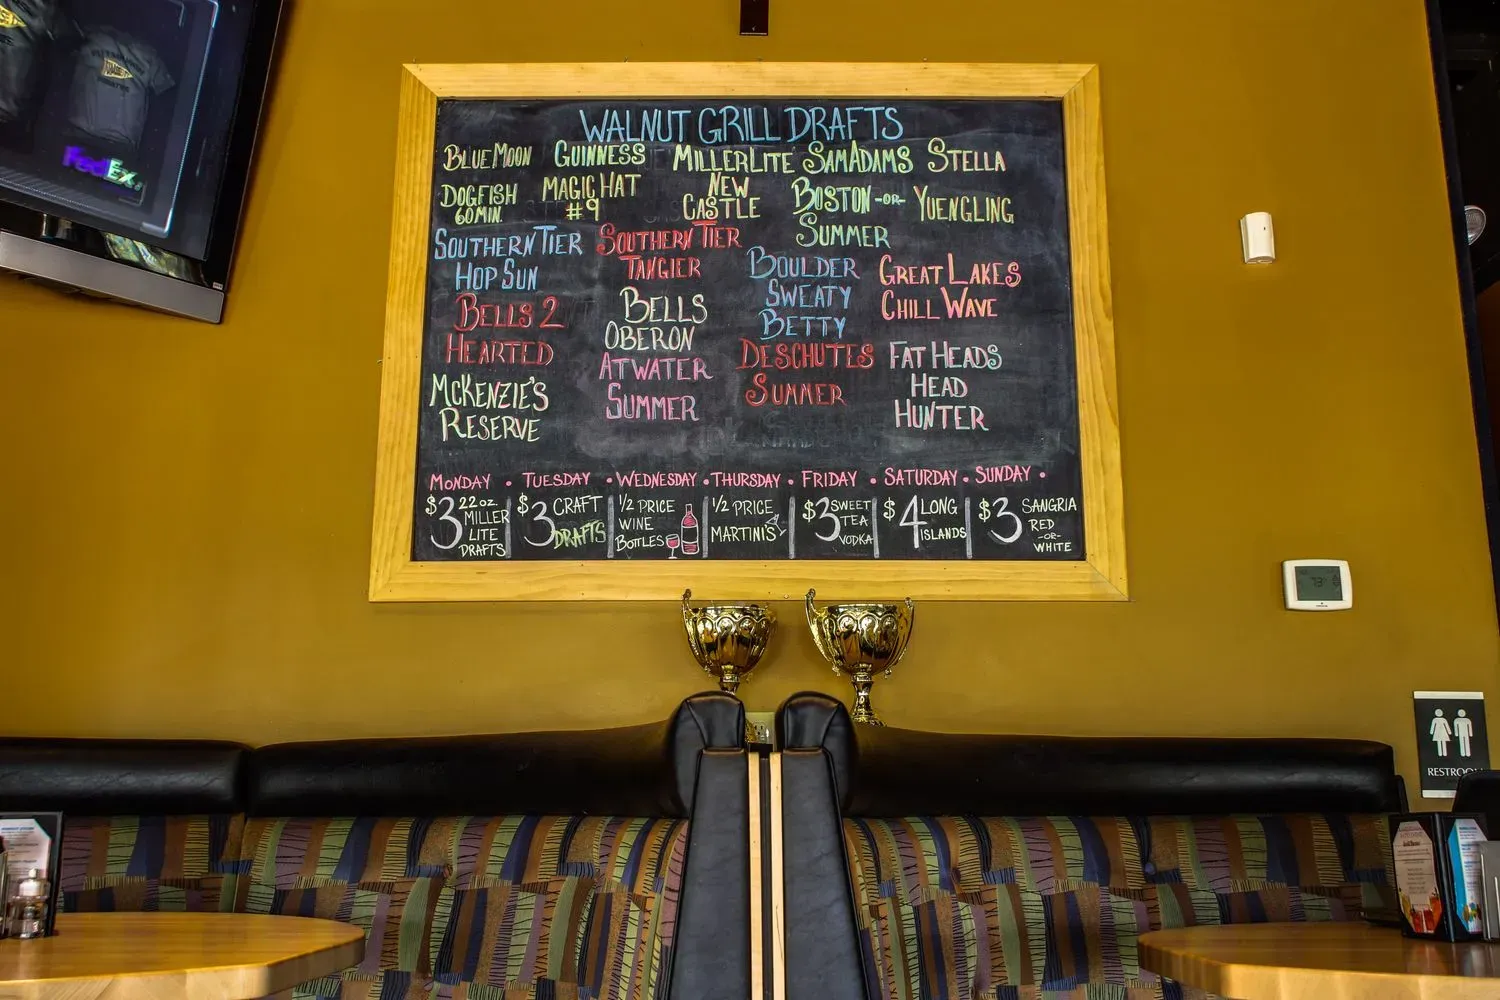 FedEx
WALNUT GRILL DRAFTS
BLUE MOON GUINNESS MILLER LITE SAM ADAMS STELLA
DOGFISH MAGIC HAT NEW BOSTON -OR- YUENGLING
60 MIN. #9 CASTLE SUMMER
SOUTHERN TIER SOUTHERN TIER BOULDER GREAT LAKES
HOP SUN TANGIER SWEATY CHILL WAVE
BELLS 2 BELLS BETTY
HEARTED OBERON DESCHUTES FAT HEADS
MCKENZIE'S ATWATER SUMMER HEAD
RESERVE SUMMER HUNTER
MONDAY • TUESDAY • WEDNESDAY • THURSDAY • FRIDAY • SATURDAY • SUNDAY •
$3 22 OZ. MILLER LITE DRAFTS
$3 CRAFT DRAFTS
1/2 PRICE WINE BOTTLES
1/2 PRICE MARTINI'S
$3 SWEET TEA VODKA
$4 LONG ISLANDS
$3 SANGRIA RED -OR- WHITE